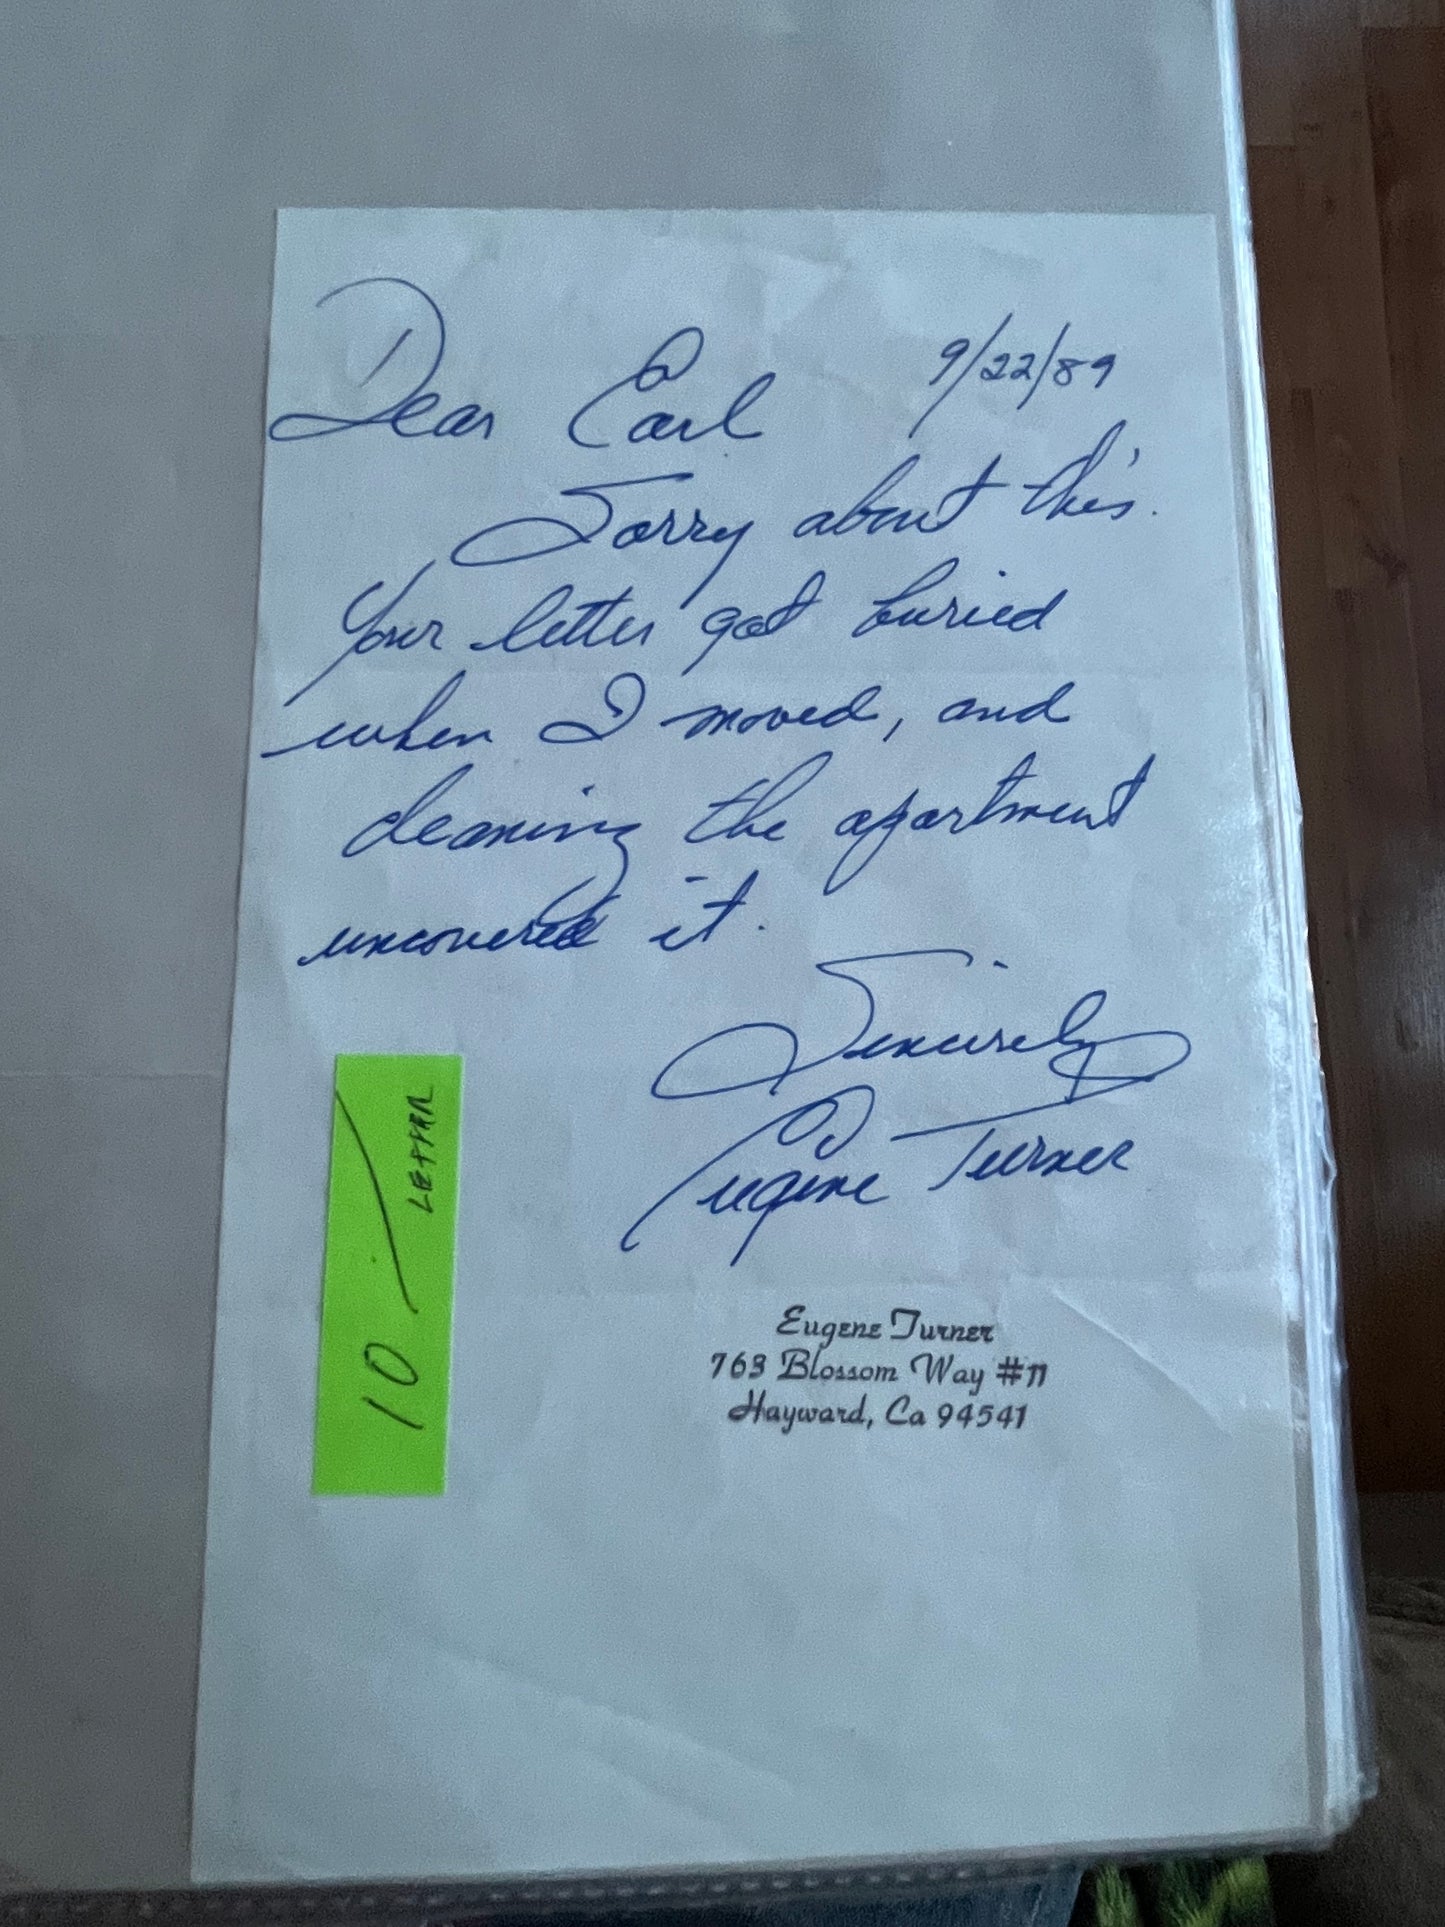 Dear Earl 9/22/89
Sorry about this.
Your letter got buried
when I moved, and
cleaning the apartment
uncovered it.
Sincerely
Eugene Turner
Eugene Turner
763 Blossom Way #11
Hayward, Ca 94541
10 LETTER